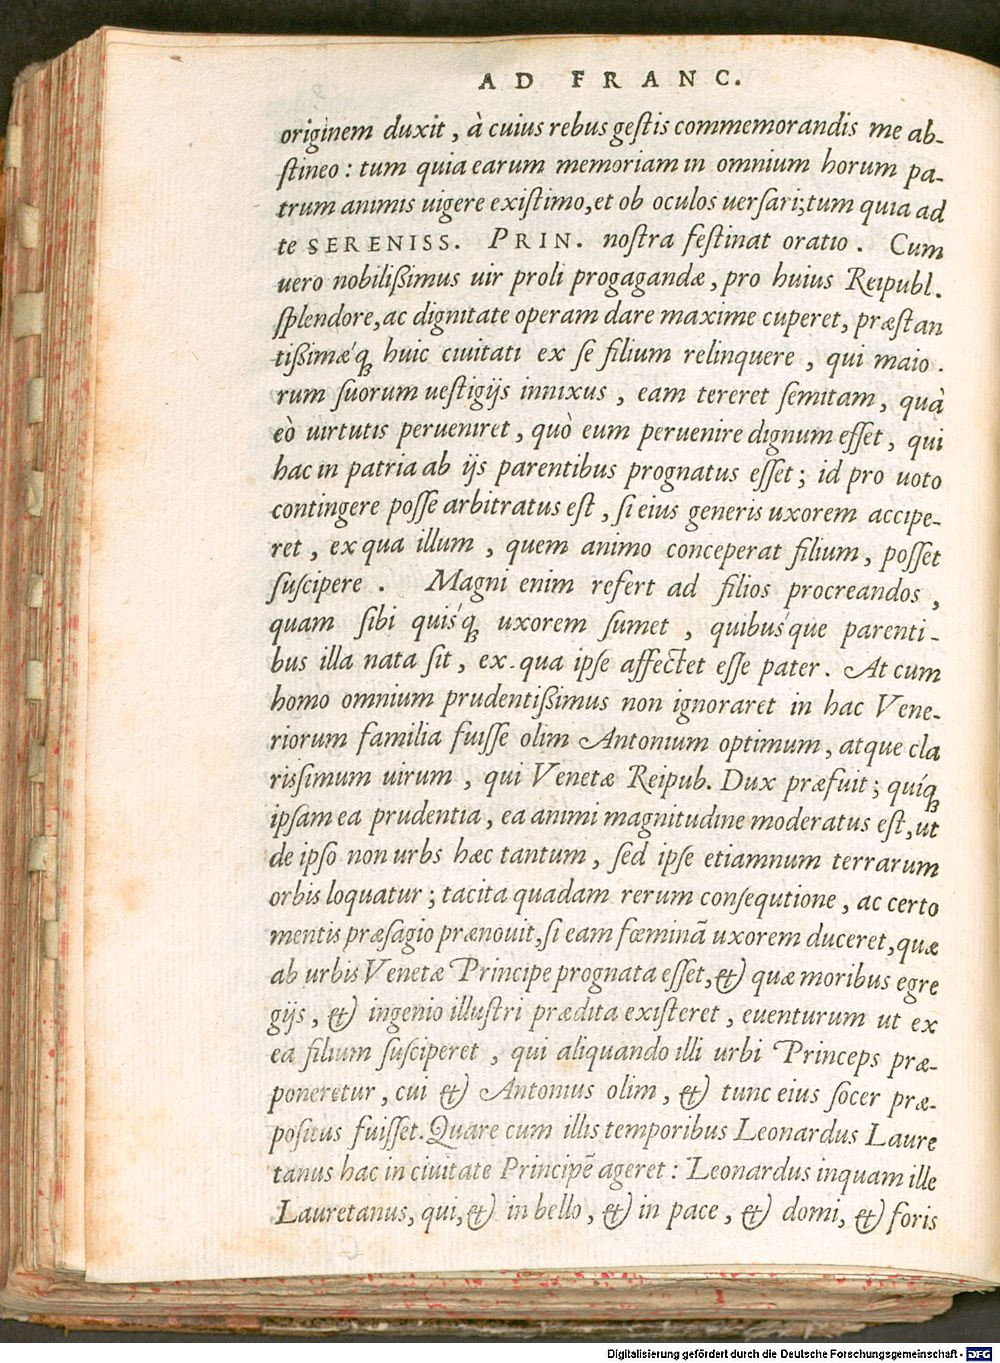 AD FRANC.
originem duxit, à cuius rebus gestis commemorandis me ab-
stineo: tum quia earum memoriam in omnium horum pa-
trum animis uigere existimo, et ob oculos uersari; tum quia ad
te SERENISS. PRIN. nostra festinat oratio. Cum
uero nobilißimus uir proli progagandæ, pro huius Reipubl.
splendore, ac dignitate operam dare maxime cuperet, præstan
tißimæ'q; huic ciuitati ex se filium relinquere, qui maio.
rum suorum uestigijs innixus, eam tereret semitam, quà
eò uirtutis perueniret, quò eum peruenire dignum esset, qui
hac in patria ab ijs parentibus prognatus esset; id pro uoto
contingere posse arbitratus est, si eius generis uxorem accipe-
ret, ex qua illum, quem animo conceperat filium, posset
suscipere. Magni enim refert ad filios procreandos,
quam sibi quis'q; uxorem sumet, quibus'que parenti-
bus illa nata sit, ex qua ipse affectet esse pater. At cum
homo omnium prudentißimus non ignoraret in hac Vene-
riorum familia fuisse olim Antonium optimum, atque cla
rissimum uirum, qui Venetæ Reipub. Dux præfuit; quíq;
ipsam ea prudentia, ea animi magnitudine moderatus est, ut
de ipso non urbs hæc tantum, sed ipse etiamnum terrarum
orbis loquatur; tacita quadam rerum consequtione, ac certo
mentis præsagio prænouit, si eam fœminã uxorem duceret, quæ
ab urbis Venetæ Principe prognata esset, & quæ moribus egre
gijs, & ingenio illustri prædita existeret, euenturum ut ex
ea filium susciperet, qui aliquando illi urbi Princeps præ-
poneretur, cui & Antonius olim, & tunc eius socer præ-
positus fuisset. Quare cum illis temporibus Leonardus Laure
tanus hac in ciuitate Principẽ ageret: Leonardus inquam ille
Lauretanus, qui, & in bello, & in pace, & domi, & foris
Digitalisierung gefördert durch die Deutsche Forschungsgemeinschaft - DFG